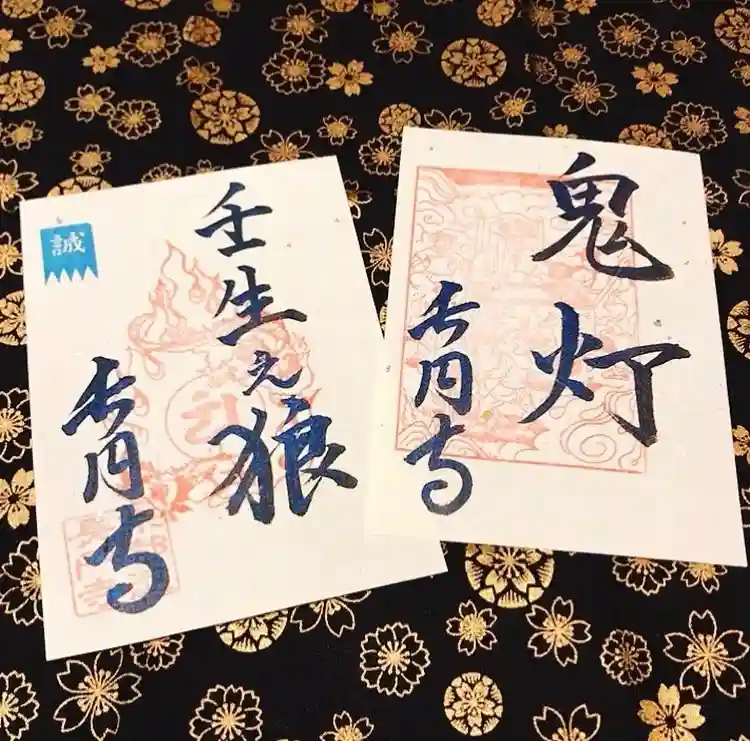 誠
壬生之狼
長円寺
鬼灯
長円寺